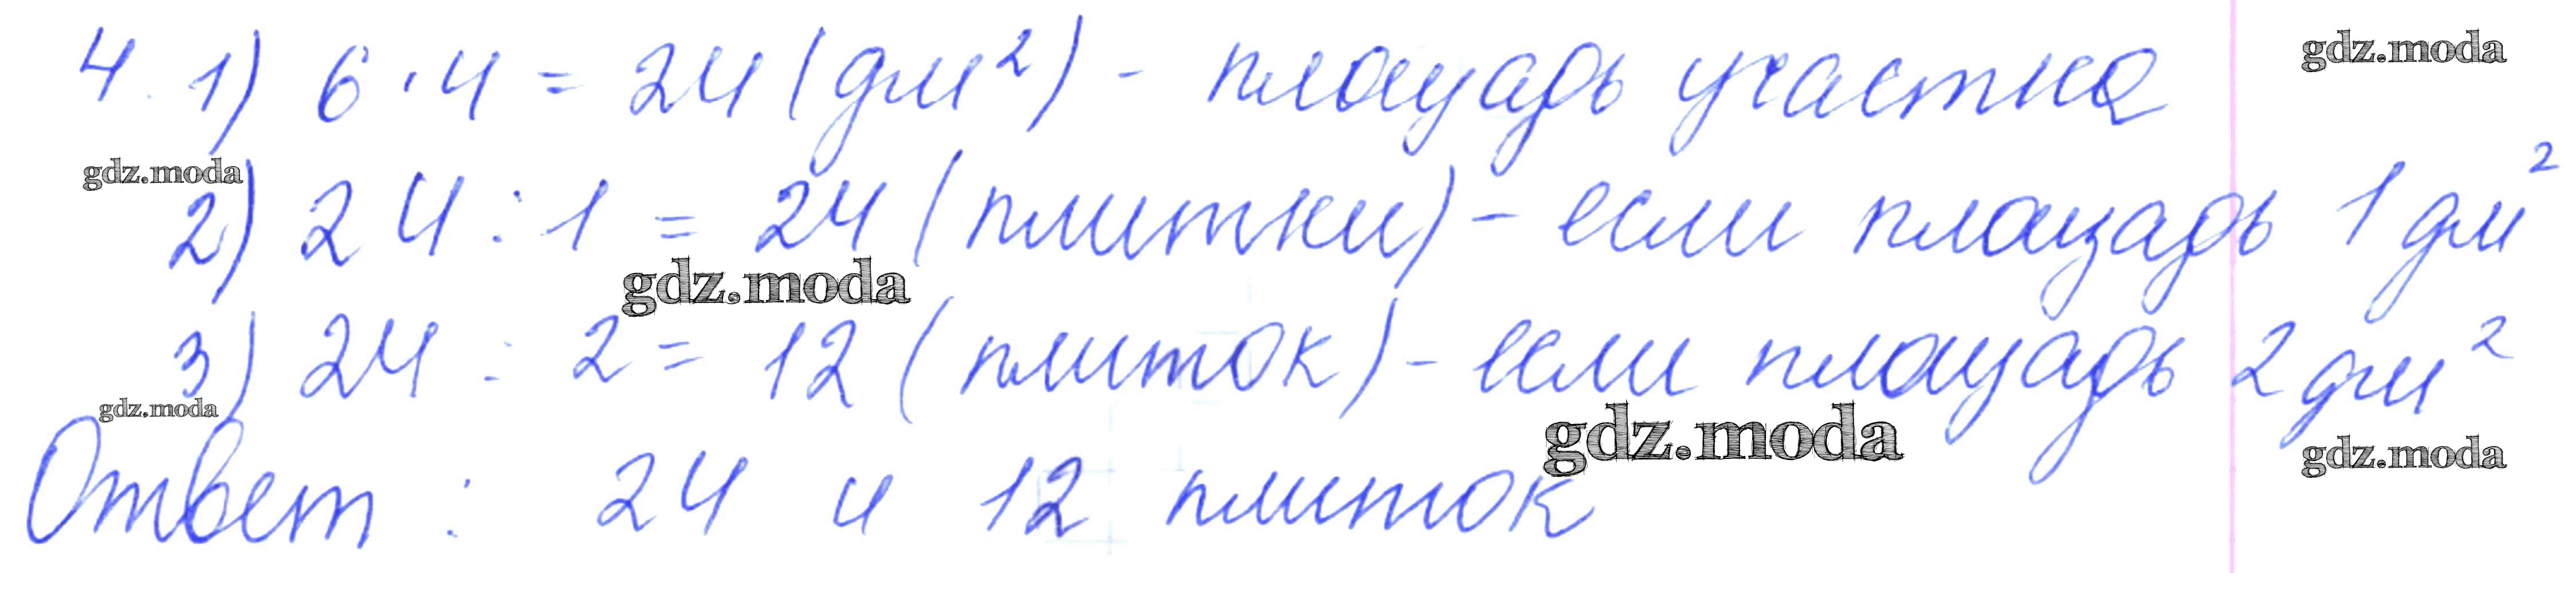 4. 1) 6 · 4 = 24 (дм²) - площадь участка
gdz.moda
gdz.moda
2) 24 : 1 = 24 (плитки) - если площадь 1 дм²
gdz.moda
3) 24 : 2 = 12 (плиток) - если площадь 2 дм²
gdz.moda
gdz.moda
gdz.moda
Ответ : 24 и 12 плиток